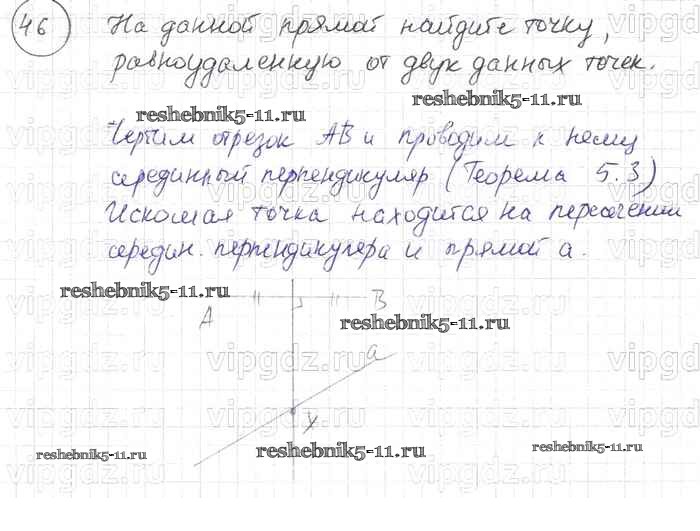 46 На данной прямой найдите точку,
равноудаленную от двух данных точек.
reshebnik5-11.ru
reshebnik5-11.ru
Чертим отрезок AB и проводим к нему
серединный перпендикуляр (Теорема 5.3)
Искомая точка находится на пересечении
середин. перпендикуляра и прямой a.
reshebnik5-11.ru
A B
reshebnik5-11.ru
a
X
reshebnik5-11.ru reshebnik5-11.ru reshebnik5-11.ru
vipgdz.ru vipgdz.ru vipgdz.ru vipgdz.ru